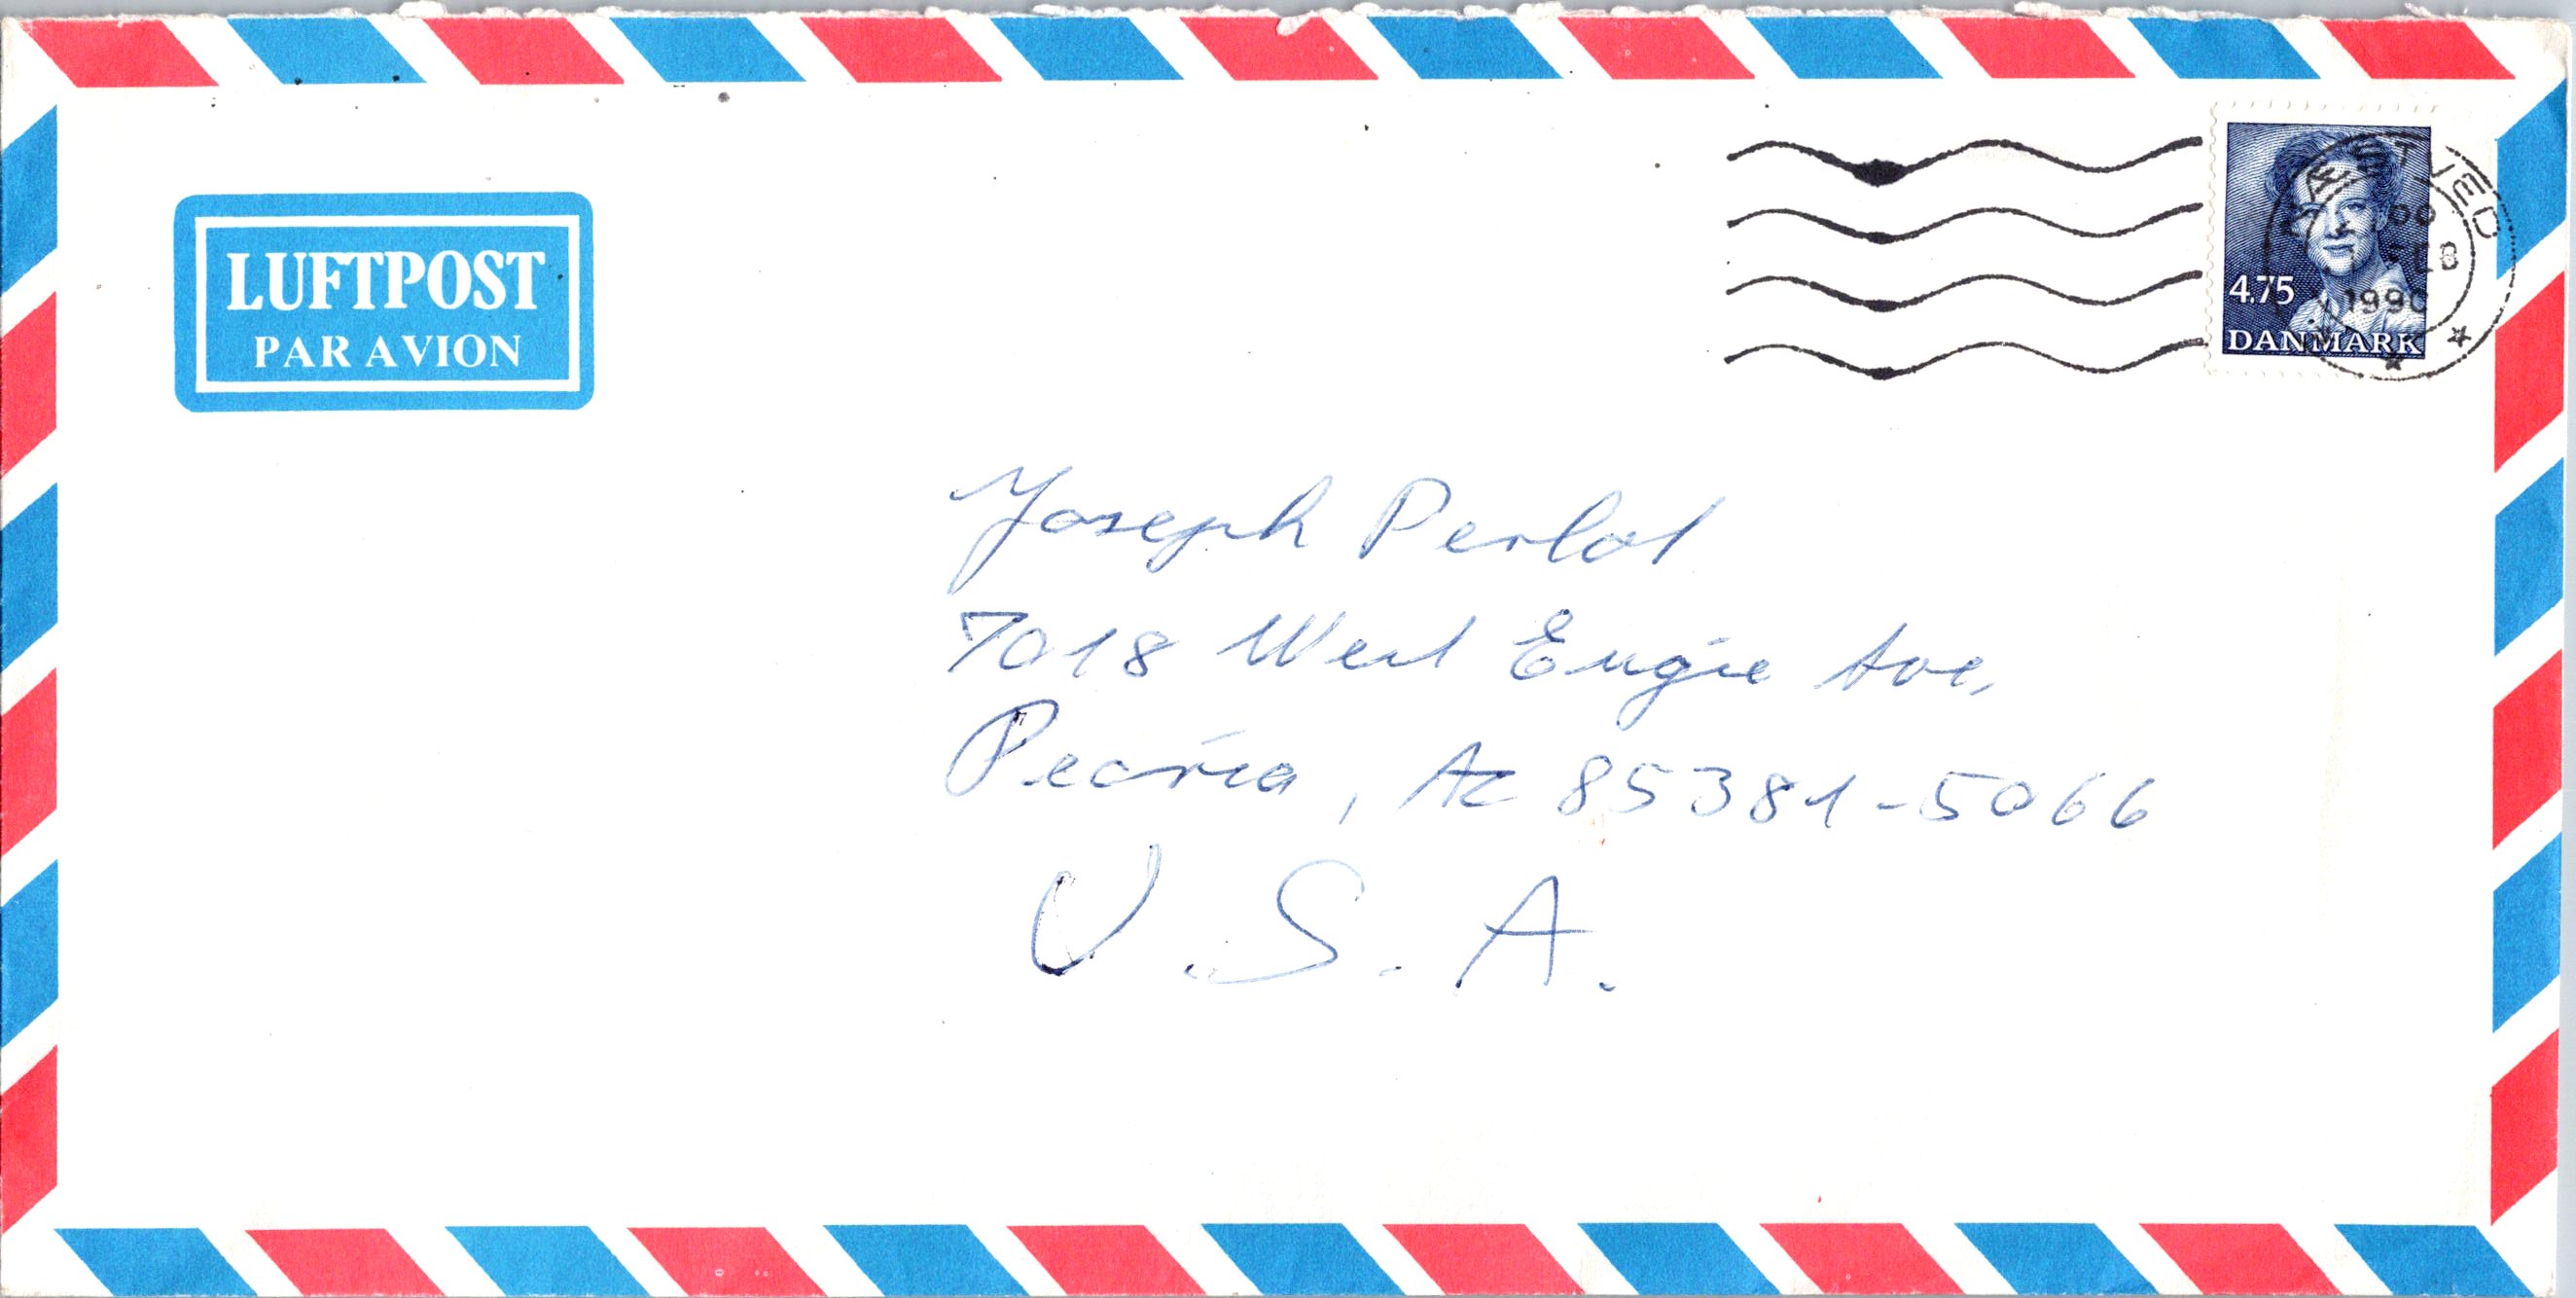 LUFTPOST
PAR AVION
NÆSTVED
FEB
1990
4.75
DANMARK
Joseph Perlot
7018 West Eugie Ave,
Peoria, Az 85381-5066
U.S.A.